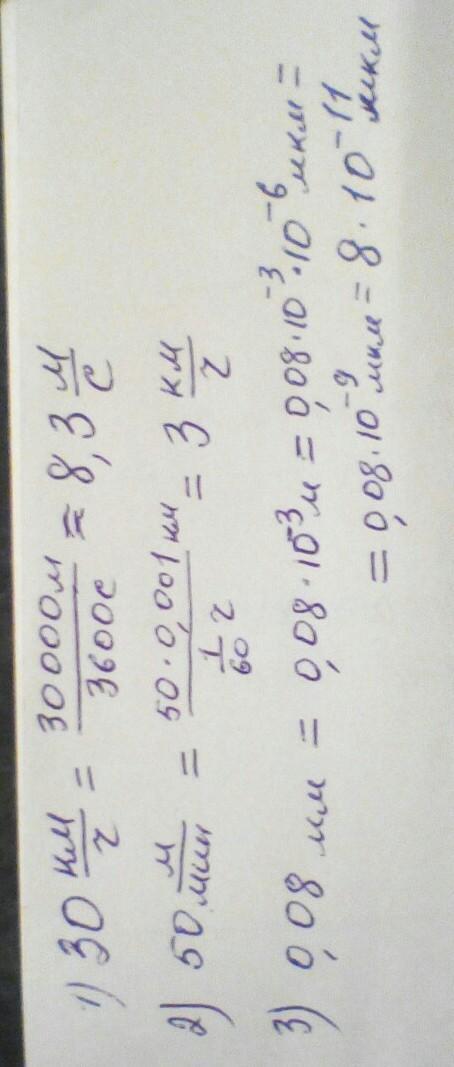 1) 30 км/ч = 30000м/3600с ≈ 8,3 м/с
2) 50 м/мин = 50·0,001км/(1/60 ч) = 3 км/ч
3) 0,08 мм = 0,08·10⁻³м = 0,08·10⁻³·10⁻⁶мкм =
= 0,08·10⁻⁹мкм = 8·10⁻¹¹мкм